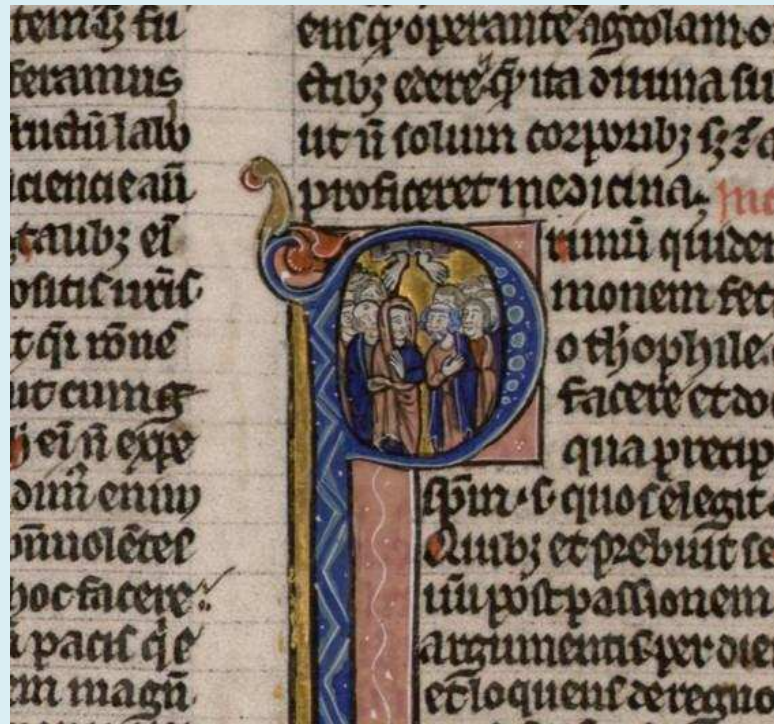 feramus
fructū labo
ciencie aū
taubꝫ ei
ositis uris
t qi rōne
ut cumq
ei n̄ expe
enim
nuolētes
hoc facere
pacis qe
em magn̄
ens qꝫ operante agcolam o
ctibꝫ edere qd ita diuina su
ut n̄ solum corporibꝫ sꝫ ⁊ a
proficeret medicina. Inc
Primū quidem
monem fec
o thophile
facere et do
qua precip
sp̄m .s. quos elegit
Quibꝫ et prebuit se
uiū post passionem
argumentis per die
et loquens de regno